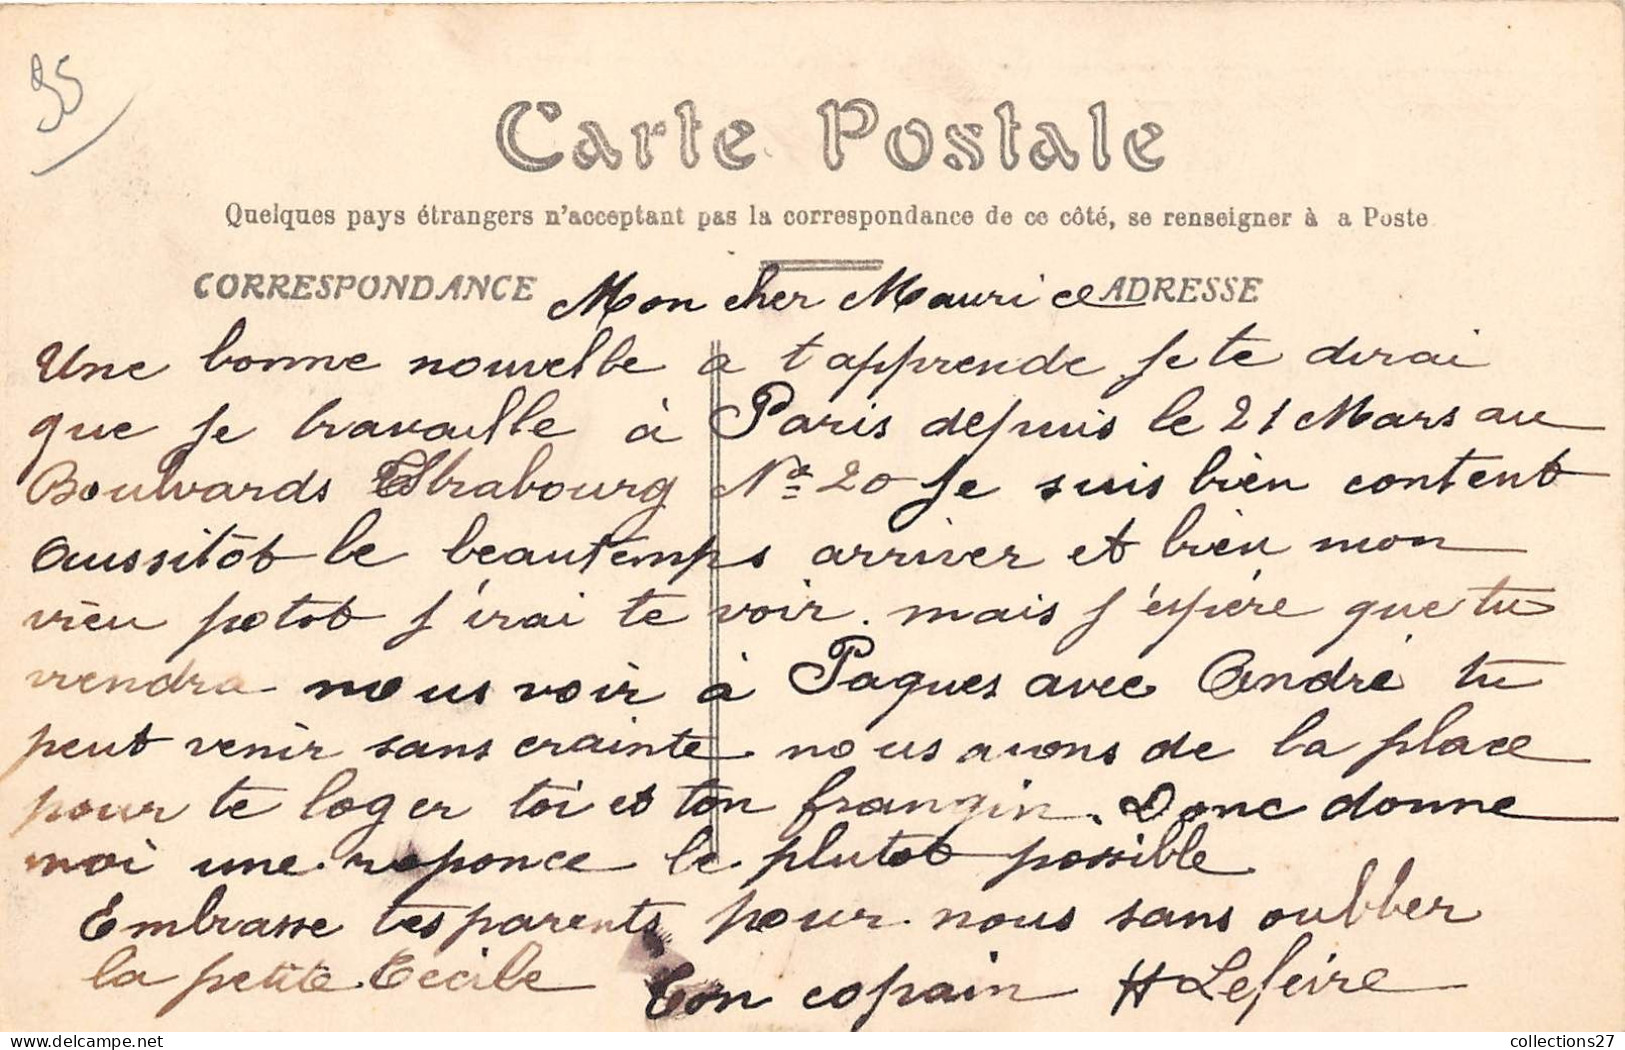 95
Carte Postale
Quelques pays étrangers n'acceptant pas la correspondance de ce côté, se renseigner à a Poste
CORRESPONDANCE
ADRESSE
Mon cher Maurice
Une bonne nouvelle a t'apprende je te dirai
que je travaille à Paris depuis le 21 Mars au
Boulvards Strabourg No 20 je suis bien content
Aussitôt le beautemps arriver et bien mon
vieu potot j'irai te voir. mais j'espére que tu
viendra nous voir à Paques avec André tu
peut venir sans crainte nous avons de la place
pour te loger toi et ton frangin. Donc donne
moi une reponce le plutot possible
Embrasse tes parents pour nous sans oublier
la petite Cecile
Ton copain H Lefeire
collections27